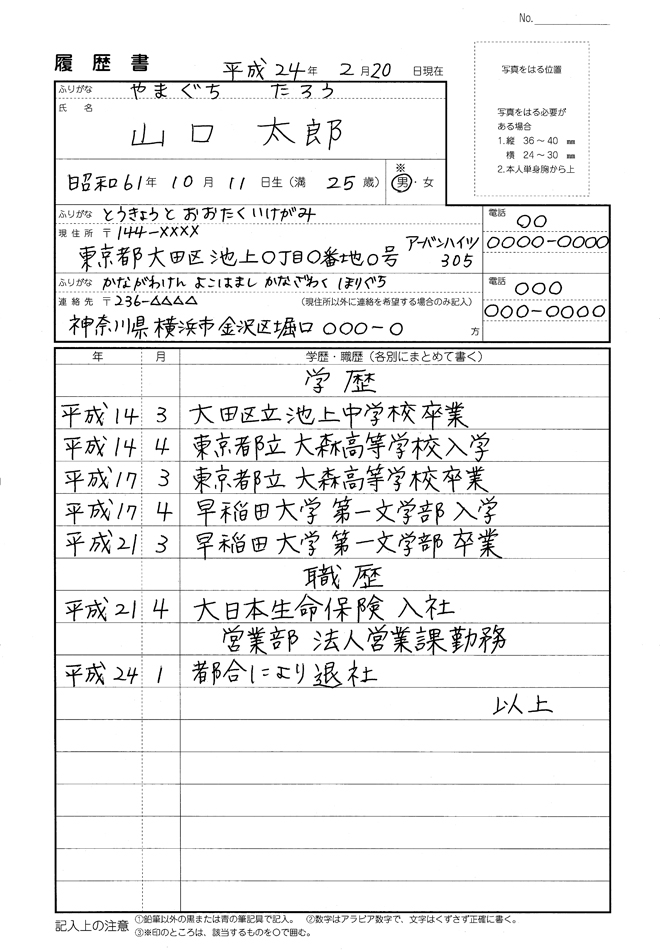 No.
履歴書 平成24年 2月20日現在
写真をはる位置
写真をはる必要が
ある場合
1.縦 36～40 ㎜
横 24～30 ㎜
2.本人単身胸から上
ふりがな やまぐち たろう
氏 名
山口 太郎
昭和61年 10月 11日生(満 25歳) ※ 男・女
ふりがな とうきょうと おおたくいけがみ
電話 〇〇
現住所 〒144-××××
〇〇〇〇-〇〇〇〇
東京都大田区池上〇丁目〇番地〇号 アーバンハイツ
305
ふりがな かながわけん よこはまし かなざわく ほりぐち
電話 〇〇〇
連絡先 〒236-△△△△ (現住所以外に連絡を希望する場合のみ記入)
〇〇〇-〇〇〇〇
神奈川県横浜市金沢区堀口 〇〇〇-〇 方
年 月 学歴・職歴(各別にまとめて書く)
学歴
平成14 3 大田区立池上中学校卒業
平成14 4 東京都立大森高等学校入学
平成17 3 東京都立大森高等学校卒業
平成17 4 早稲田大学 第一文学部 入学
平成21 3 早稲田大学 第一文学部 卒業
職歴
平成21 4 大日本生命保険 入社
営業部 法人営業課勤務
平成24 1 都合により退社
以上
記入上の注意 ①鉛筆以外の黒または青の筆記具で記入。 ②数字はアラビア数字で、文字はくずさず正確に書く。
③※印のところは、該当するものを〇で囲む。